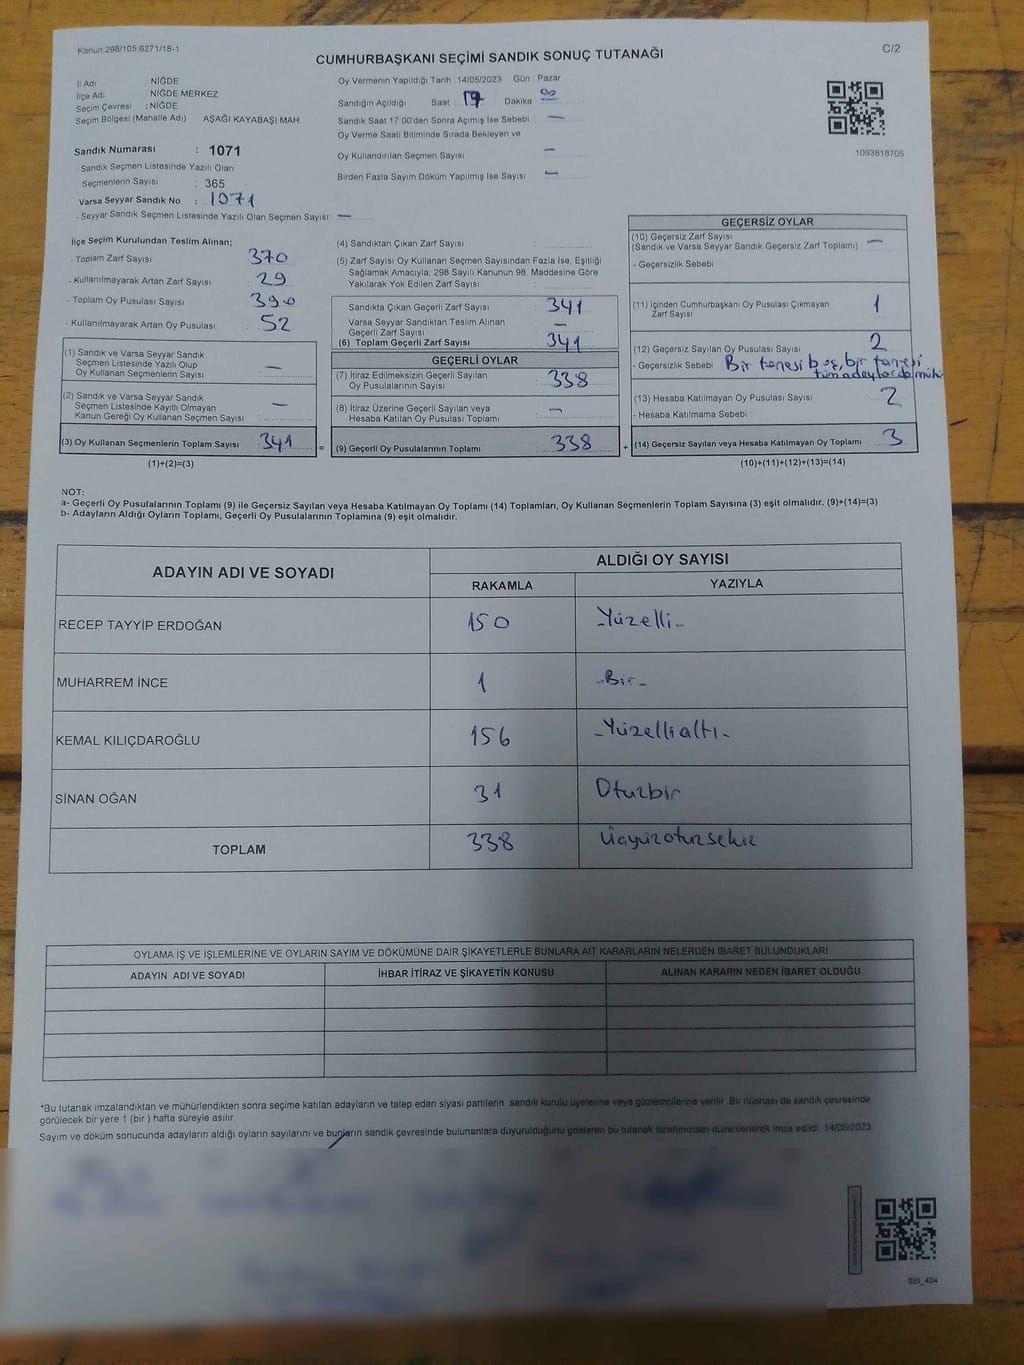 Kanun 298/105,6271/18-1
C/2
CUMHURBAŞKANI SEÇİMİ SANDIK SONUÇ TUTANAĞI
İl Adı : NİĞDE
İlçe Adı : NİĞDE MERKEZ
Seçim Çevresi : NİĞDE
Seçim Bölgesi (Mahalle Adı) : AŞAĞI KAYABAŞI MAH.
Sandık Numarası : 1071
- Sandık Seçmen Listesinde Yazılı Olan
Seçmenlerin Sayısı : 365
Varsa Seyyar Sandık No : 1071
- Seyyar Sandık Seçmen Listesinde Yazılı Olan Seçmen Sayısı: —
Oy Vermenin Yapıldığı Tarih 14/05/2023 Gün : Pazar
Sandığın Açıldığı Saat : 17 Dakika :
Sandık Saat 17:00'den Sonra Açımış İse Sebebi : —
Oy Verme Saati Bitiminde Sırada Bekleyen ve
Oy Kullandırılan Seçmen Sayısı : —
Birden Fazla Sayım Döküm Yapılmış İse Sayısı : —
1093818705
İlçe Seçim Kurulundan Teslim Alınan;
- Toplam Zarf Sayısı : 370
- Kullanılmayarak Artan Zarf Sayısı : 29
- Toplam Oy Pusulası Sayısı : 390
- Kullanılmayarak Artan Oy Pusulası : 52
(1) Sandık ve Varsa Seyyar Sandık
Seçmen Listesinde Yazılı Olup
Oy Kullanan Seçmenlerin Sayısı : —
(2) Sandık ve Varsa Seyyar Sandık
Seçmen Listesinde Kayıtlı Olmayan
Kanun Gereği Oy Kullanan Seçmen Sayısı : —
(3) Oy Kullanan Seçmenlerin Toplam Sayısı : 341 =
(1)+(2)=(3)
(4) Sandıktan Çıkan Zarf Sayısı :
(5) Zarf Sayısı Oy Kullanan Seçmen Sayısından Fazla İse, Eşitliği
Sağlamak Amacıyla; 298 Sayılı Kanunun 98. Maddesine Göre
Yakılarak Yok Edilen Zarf Sayısı :
Sandıkta Çıkan Geçerli Zarf Sayısı : 341
Varsa Seyyar Sandıktan Teslim Alınan
Geçerli Zarf Sayısı : —
(6) Toplam Geçerli Zarf Sayısı : 341
GEÇERLİ OYLAR
(7) İtiraz Edilmeksizin Geçerli Sayılan
Oy Pusulalarının Sayısı : 338
(8) İtiraz Üzerine Geçerli Sayılan veya
Hesaba Katılan Oy Pusulası Toplamı : —
(9) Geçerli Oy Pusulalarının Toplamı : 338 +
GEÇERSİZ OYLAR
(10) Geçersiz Zarf Sayısı
(Sandık ve Varsa Seyyar Sandık Geçersiz Zarf Toplamı) : —
- Geçersizlik Sebebi :
(11) İçinden Cumhurbaşkanı Oy Pusulası Çıkmayan
Zarf Sayısı : 1
(12) Geçersiz Sayılan Oy Pusulası Sayısı : 2
- Geçersizlik Sebebi : Bir tanesi boş, bir tanesi
tüm adaylarda mühür
(13) Hesaba Katılmayan Oy Pusulası Sayısı : 2
- Hesaba Katılmama Sebebi :
(14) Geçersiz Sayılan veya Hesaba Katılmayan Oy Toplamı : 3
(10)+(11)+(12)+(13)=(14)
NOT:
a- Geçerli Oy Pusulalarının Toplamı (9) ile Geçersiz Sayılan veya Hesaba Katılmayan Oy Toplamı (14) Toplamları, Oy Kullanan Seçmenlerin Toplam Sayısına (3) eşit olmalıdır. (9)+(14)=(3)
b- Adayların Aldığı Oyların Toplamı, Geçerli Oy Pusulalarının Toplamına (9) eşit olmalıdır.
ADAYIN ADI VE SOYADI
ALDIĞI OY SAYISI
RAKAMLA YAZIYLA
RECEP TAYYİP ERDOĞAN 150 -Yüzelli-
MUHARREM İNCE 1 -Bir-
KEMAL KILIÇDAROĞLU 156 -Yüzellialtı-
SİNAN OĞAN 31 Otuzbir
TOPLAM 338 Üçyüzotuzsekiz
OYLAMA İŞ VE İŞLEMLERİNE VE OYLARIN SAYIM VE DÖKÜMÜNE DAİR ŞİKAYETLERLE BUNLARA AİT KARARLARIN NELERDEN İBARET BULUNDUKLARI
ADAYIN ADI VE SOYADI İHBAR İTİRAZ VE ŞİKAYETİN KONUSU ALINAN KARARIN NEDEN İBARET OLDUĞU
*Bu tutanak imzalandıktan ve mühürlendikten sonra seçime katılan adayların ve talep eden siyasi partilerin sandık kurulu üyelerine veya gözlemcilerine verilir. Bir nüshası da sandık çevresinde
görülecek bir yere 1 (bir ) hafta süreyle asılır.
Sayım ve döküm sonucunda adayların aldığı oyların sayılarını ve bunların sandık çevresinde bulunanlara duyurulduğunu gösteren bu tutanak tarafımızdan düzenlenerek imza edildi. 14/05/2023
SSI_404